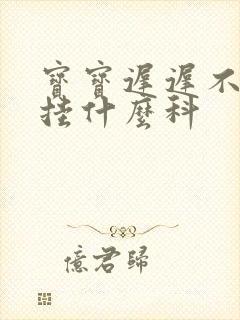 寶寶遲遲不
挂什麼科
億君歸